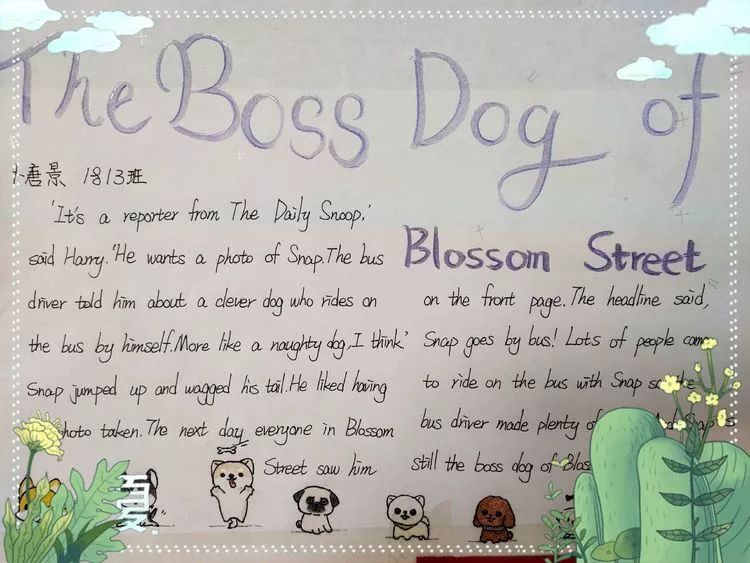 The Boss Dog of
Blossom Street
唐景 1813班
'It's a reporter from The Daily Snoop,'
said Harry. 'He wants a photo of Snap. The bus
driver told him about a clever dog who rides on
the bus by himself. More like a naughty dog, I think.'
Snap jumped up and wagged his tail. He liked having
photo taken. The next day everyone in Blossom
Street saw him
on the front page. The headline said,
Snap goes by bus! Lots of people
to ride on the bus with Snap so the
bus driver made plenty
still the boss dog of
夏